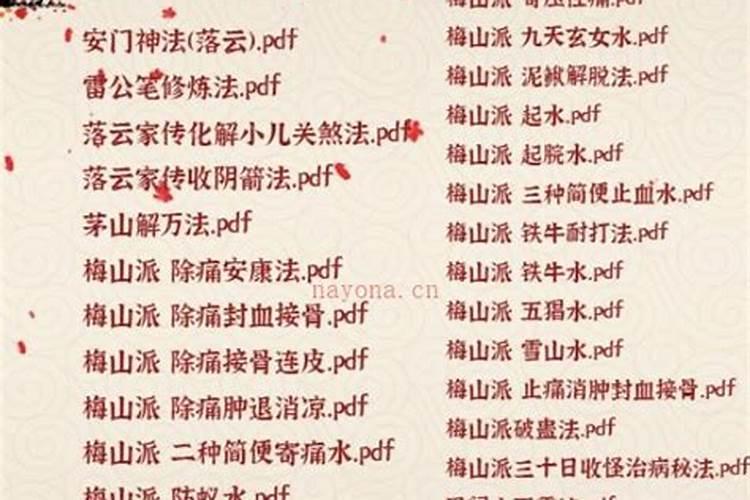 安门神法(落云).pdf
雷公笔修炼法.pdf
落云家传化解小儿关煞法.pdf
落云家传收阴箭法.pdf
茅山解万法.pdf
梅山派 除痛安康法.pdf
梅山派 除痛封血接骨.pdf
梅山派 除痛接骨连皮.pdf
梅山派 除痛肿退消凉.pdf
梅山派 二种简便寄痛水.pdf
梅山派 防蚁水.pdf
梅山派 九天玄女水.pdf
梅山派 泥鳅解脱法.pdf
梅山派 起水.pdf
梅山派 起脘水.pdf
梅山派 三种简便止血水.pdf
梅山派 铁牛耐打法.pdf
梅山派 铁牛水.pdf
梅山派 五猖水.pdf
梅山派 雪山水.pdf
梅山派 止痛消肿封血接骨.pdf
梅山派破蛊法.pdf
梅山派三十日收怪治病秘法.pdf
nayona.cn